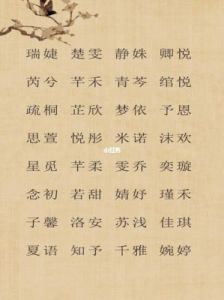 瑞婕 楚雯 静姝 卿悦
芮兮 芊禾 青芩 绾悦
疏桐 芷欣 梦依 予恩
思萱 悦彤 米诺 沫欢
星觅 芊柔 雯乔 奕璇
念初 若甜 婧妤 瑾禾
子馨 洛安 苏浅 佳琪
夏语 知予 千雅 婉婷